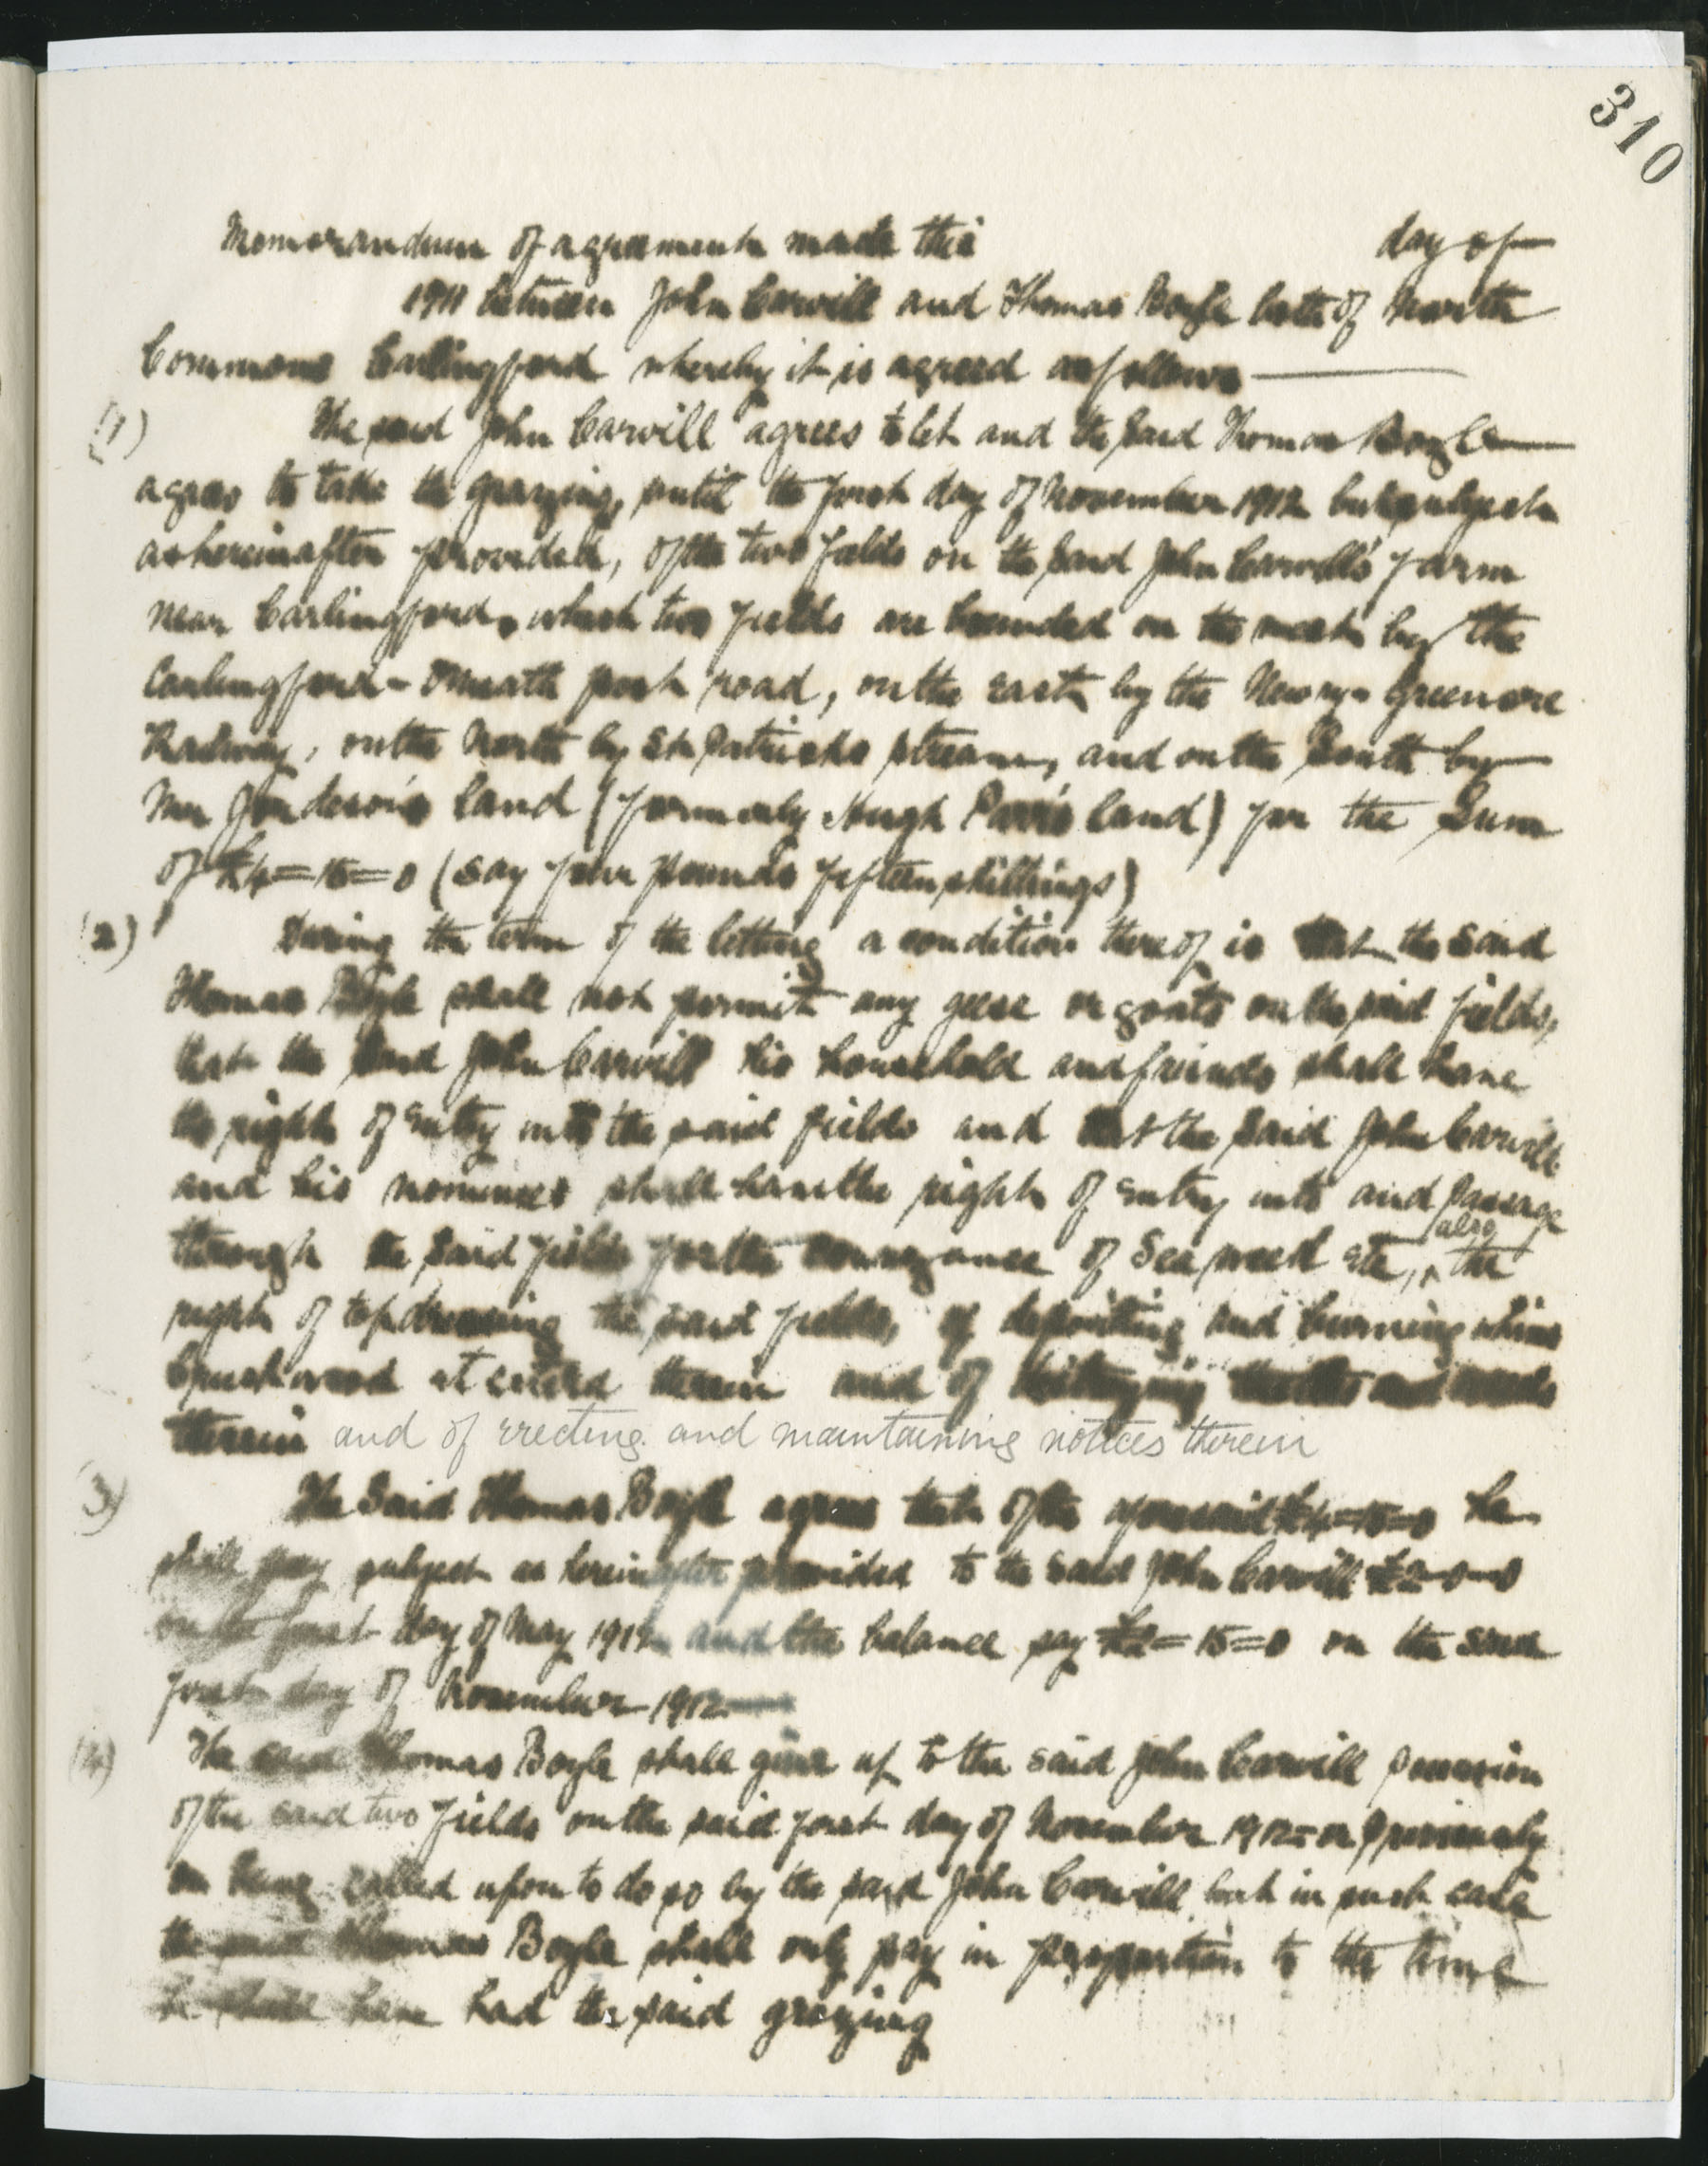 310
Memorandum of agreement made this day of
1911 between John Carvill and Thomas Boyle both of North
Commons Carlingford whereby it is agreed as follows
(1) The said John Carvill agrees to let and the said Thomas Boyle
agrees to take the grazing, until the first day of November 1912 but subject
as hereinafter provided, of the two fields on the said John Carvill's farm
near Carlingford, which two fields are bounded on the west by the
Carlingford-Omeath post road, on the east by the Newry-Greenore
Railway, on the North by St Patricks stream, and on the South by
Mr land (formerly Hugh land) for the Sum
of £4=15=0 (say four pounds fifteen shillings)
(2) During the term of the letting a condition thereof is that the said
Thomas Boyle shall not permit any geese or goats on the said fields,
that the said John Carvill his household and friends shall have
the right of entry into the said fields and that the said John Carvill
and his nominees shall have the right of entry into and passage
through the said fields for the conveyance of Sea weed etc, also the
right of topdressing the said fields, of depositing and burning whins
brushwood et cetera therein and of destroying thistles and weeds
therein and of erecting and maintaining notices therein
(3) The Said Thomas Boyle agrees that of the aforesaid £4=15=0 he
shall pay subject as hereinafter provided to the said John Carvill £2-0-0
on the first day of May 1912 and the balance say £2=15=0 on the said
first day of November 1912
(4) The said Thomas Boyle shall give up to the said John Carvill possession
of the said two fields on the said first day of November 1912 or previously
on being called upon to do so by the said John Carvill but in such case
the said Thomas Boyle shall only pay in proportion to the time
he shall have had the said grazing